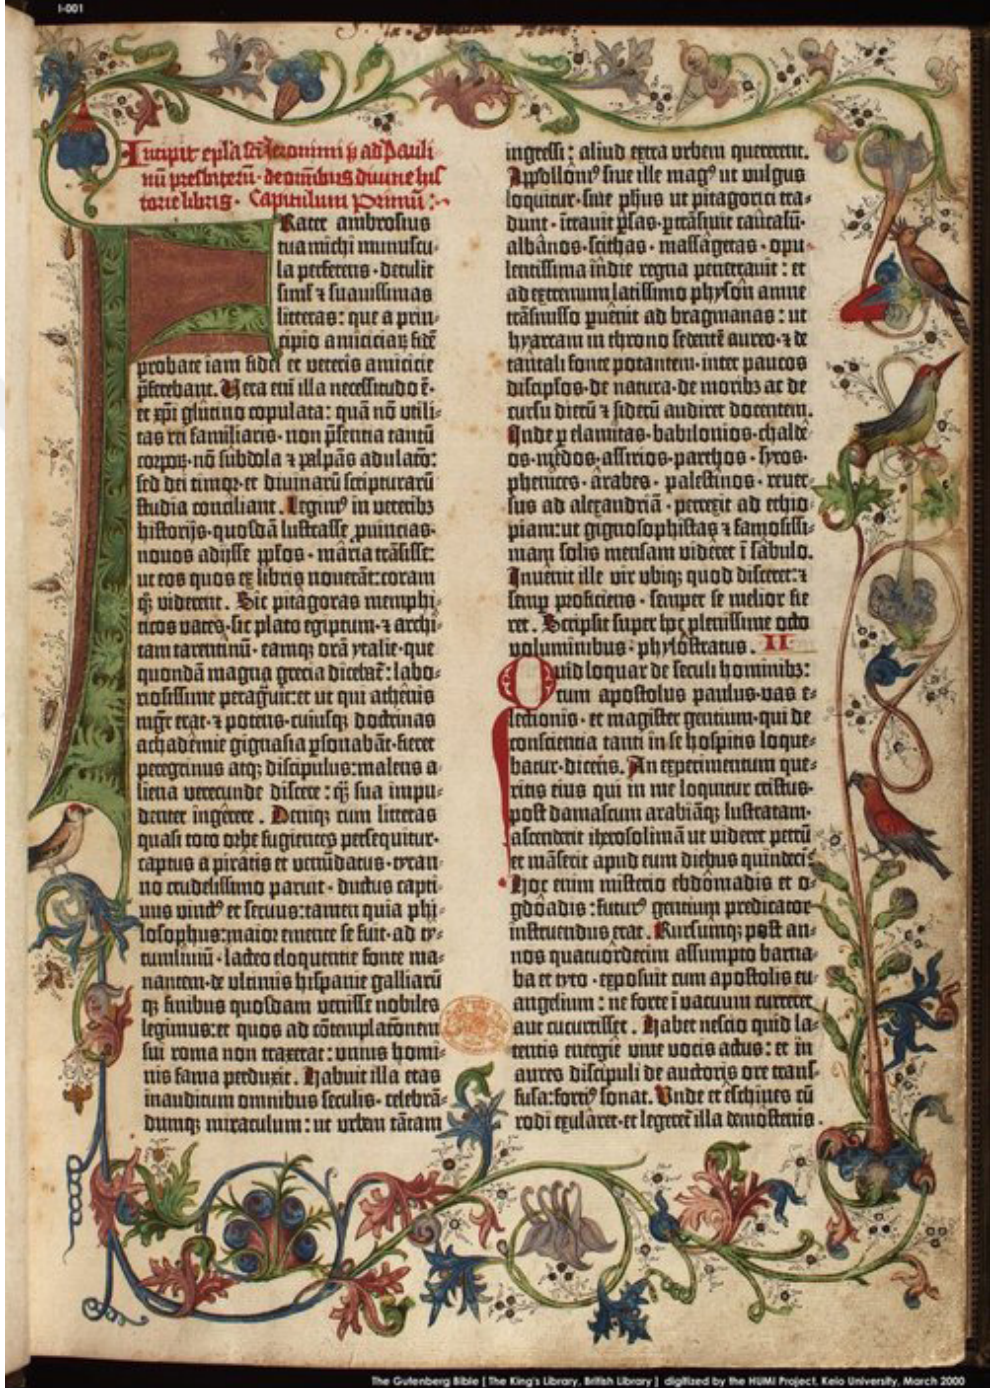 I-001
Incipit epl̄a sc̄i Jeronimi p̄ ad Pauli
nū presbiterū · de omnibus divine his
torie libris · Capitulum Primū:
Frater ambrosius
tua michi munuscu-
la perferens · detulit
siml̄ ⁊ suauissimas
litteras : que a prin-
cipio amiciciaꝝ fidē
probate iam fidei et veteris amicicie
p̄ferebant. Vera eni illa necessitudo ē·
et xp̄i glutino copulata : quā nō vtili-
tas rei familiaris · non p̄sentia tantū
corpoꝝ · nō subdola ⁊ palpās adulatō:
sed dei timor · et divinarū scripturarū
studia conciliant. Legimꝰ in veteribꝫ
historijs · quosdā lustrasse ꝓuincias·
nouos adijsse pplos · maria trāsisse:
ut eos quos ex libris nouerāt : coram
qꝫ viderent. Sic pitagoras memphi-
ticos vates · sic plato egiptum · ⁊ archi-
tam tarentinū · eamqꝫ orā ytalie · que
quondā magna grecia dicebat̄ : labo-
riosissime peragᷓuit : et ut qui athenis
mgr̄ erat · ⁊ potens · cuiusqꝫ doctrinas
achademie gignasia ꝑsonabāt · fieret
peregrinus atqꝫ discipulus : malens a-
liena verecunde discere : qꝫ sua impu-
denter ingerere. Deniqꝫ cum litteras
quasi toto orbe fugientes persequitur·
captus a piratis et venūdatus · tyran-
no crudelissimo paruit · ductus capti-
uus vinctꝰ et seruus : tamen quia phi-
losophus : maior emente se fuit · ad ty-
tumliuiū · lacteo eloquentie fonte ma-
nantem · de vltimis hispanie galliarū
qꝫ finibus quosdam venisse nobiles
legimus : et quos ad cōtemplatōnem
sui roma non traxerat : vnius homi-
nis fama perduxit. Habuit illa etas
inauditum omnibus seculis · celebrā-
dumqꝫ miraculum : ut vrbem tātam
ingressi : aliud extra vrbem quererent.
Appolloniꝰ siue ille magꝰ ut vulgus
loquitur · siue ph̄us ut pitagorici tra-
dunt · ītrauit ꝑsas · ꝑtrāsiuit caucasū·
albānos · scithas · massagetas · opu-
lentissima indie regna penetrauit : et
ad extremum latissimo physon amne
trāsmisso puenit ad bragmanas : ut
hyarcam in throno sedentē aureo · ⁊ de
tantali fonte potantem · inter paucos
discip̄los · de natura · de moribꝫ ac de
cursu dierū ⁊ siderū audiret docentem.
Inde ꝑ elamitas · babilonios · chalde-
os · medos · assirios · parthos · syros·
phenices · arabes · palestinos · reuer-
sus ad alexandriā · perrexit ad ethio
piam : ut gignosophistas ⁊ famosissi-
mam solis mensam videret ī sabulo.
Inuenit ille vir vbiqꝫ quod disceret : ⁊
semꝑ proficiens · semper se melior fie
ret. Scripsit super hoc plenissime octo
voluminibus : phylostratus. II
Quid loquar de seculi hominibꝫ :
cum apostolus paulus · vas e-
lectionis · et magister gentium · qui de
conscientia tanti in se hospitis loque-
batur · dicens. An experimentum que-
ritis eius qui in me loquitur cristus·
post damascum arabiāqꝫ lustratam·
ascenderit iherosolimā ut videret petrū
et māserit apud eum diebus quindecī
Hoc enim misterio ebdomadis et o-
gdoadis : futurꝰ gentium predicator
instruendus erat. Rursumqꝫ post an-
nos quatuordecim assumpto barna-
ba et tyto · exposuit cum apostolis eu-
angelium : ne forte ī vacuum curreret
aut cucurrisset. Habet nescio quid la-
tentis energie viue vocis actus : et in
aures discipuli de auctoris ore trans-
fusa : fortiꝰ sonat. Vnde et eschines cū
rodi exularet · et legeret̄ illa demostenis
The Gutenberg Bible [ The King's Library, British Library ] digitized by the HUMI Project, Keio University, March 2000